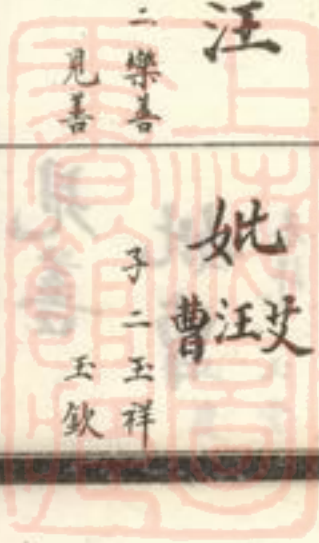 汪
二樂善
見善
妣
艾
汪
曹
子二玉祥
玉欽